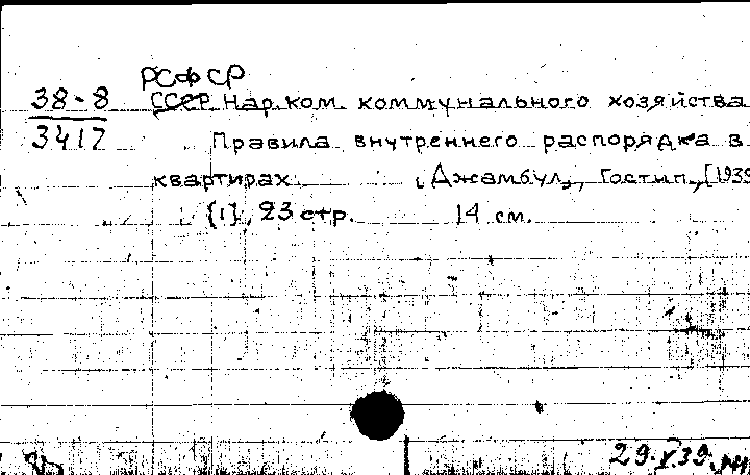 РСФСР
38-8 СССР Нар.ком. коммунального хозяйства
3417 Правила внутреннего распорядка в
квартирах. Джамбул, Гостип., [1939
[1], 23 стр. 14 см.
29.X 39.